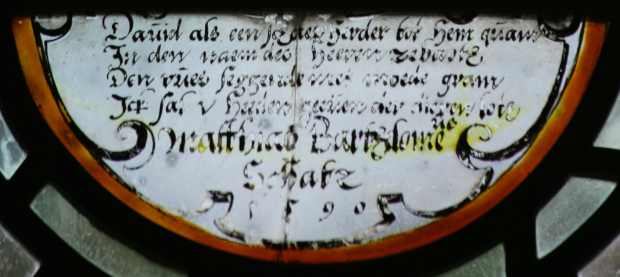 Dauid als een herder tot hem quam
In den naem des Heeren zebaotz
Den rues seggende met moede gram
Ick sal v heden geuen der vogen
Matthias Bartholome
Schatz
1590